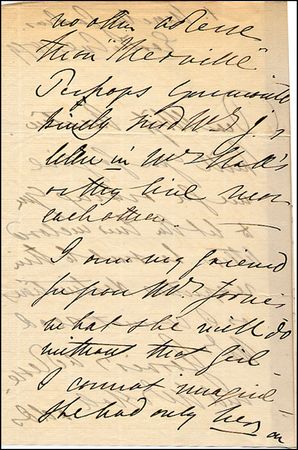 no other adresse
than "Merville"
Perhaps you will
kindly send Mrs J's
letter in Mrs Hall's
as they live near
each other.
I own my friend
Mrs Jones
what she will do
without that girl
I cannot imagine
she had only her on